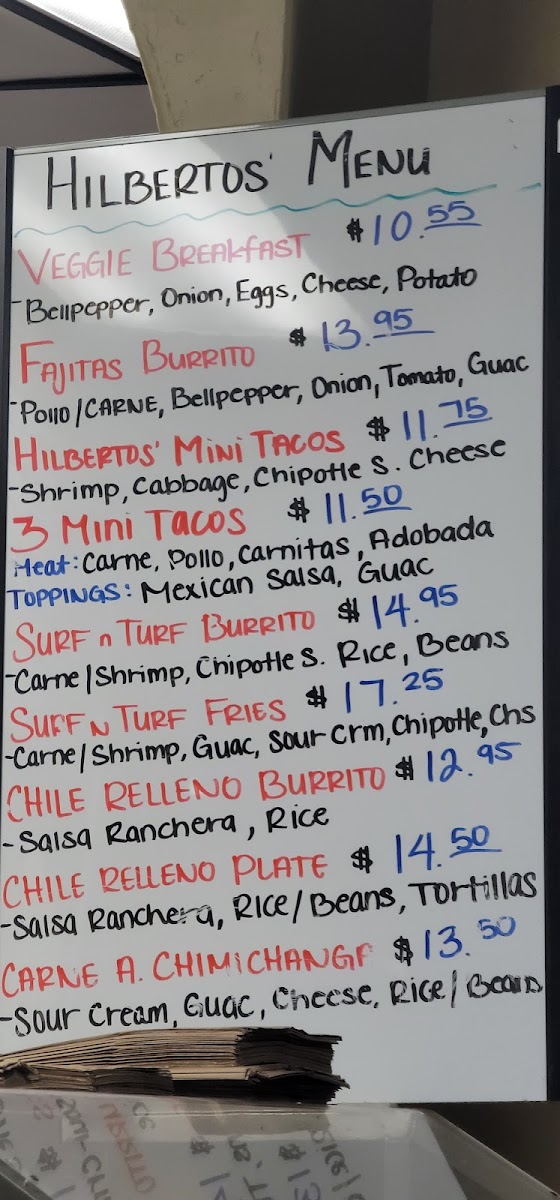 HILBERTOS' MENU
VEGGIE BREAKFAST $10.55
-Bellpepper, Onion, Eggs, Cheese, Potato
FAJITAS BURRITO $13.95
-Pollo/CARNE, Bellpepper, Onion, Tomato, Guac
HILBERTOS' MINI TACOS $11.75
-Shrimp, Cabbage, Chipotle S. Cheese
3 MINI TACOS $11.50
Meat: Carne, Pollo, Carnitas, Adobada
TOPPINGS: Mexican Salsa, Guac
SURF n TURF BURRITO $14.95
-Carne/Shrimp, Chipotle S. Rice, Beans
SURF N TURF FRIES $17.25
-Carne/Shrimp, Guac, Sour Crm, Chipotle, Chs
CHILE RELLENO BURRITO $12.95
-Salsa Ranchera, Rice
CHILE RELLENO PLATE $14.50
-Salsa Ranchera, Rice/Beans, Tortillas
CARNE A. CHIMICHANGA $13.50
-Sour Cream, Guac, Cheese, Rice/Beans